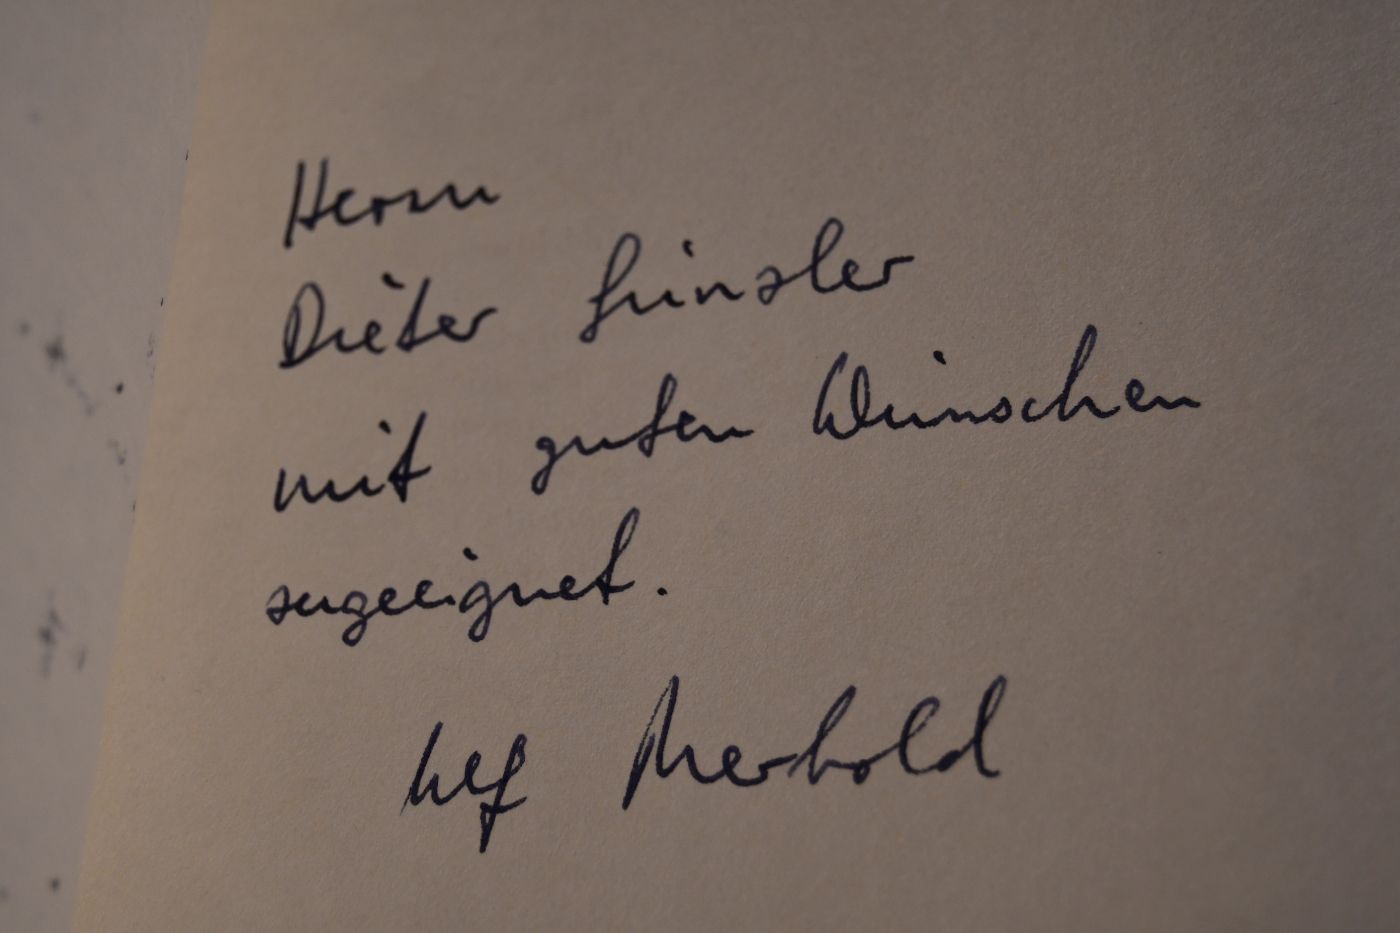 Herrn
Dieter
mit guten Wünschen
zugeeignet.
Ulf Merbold